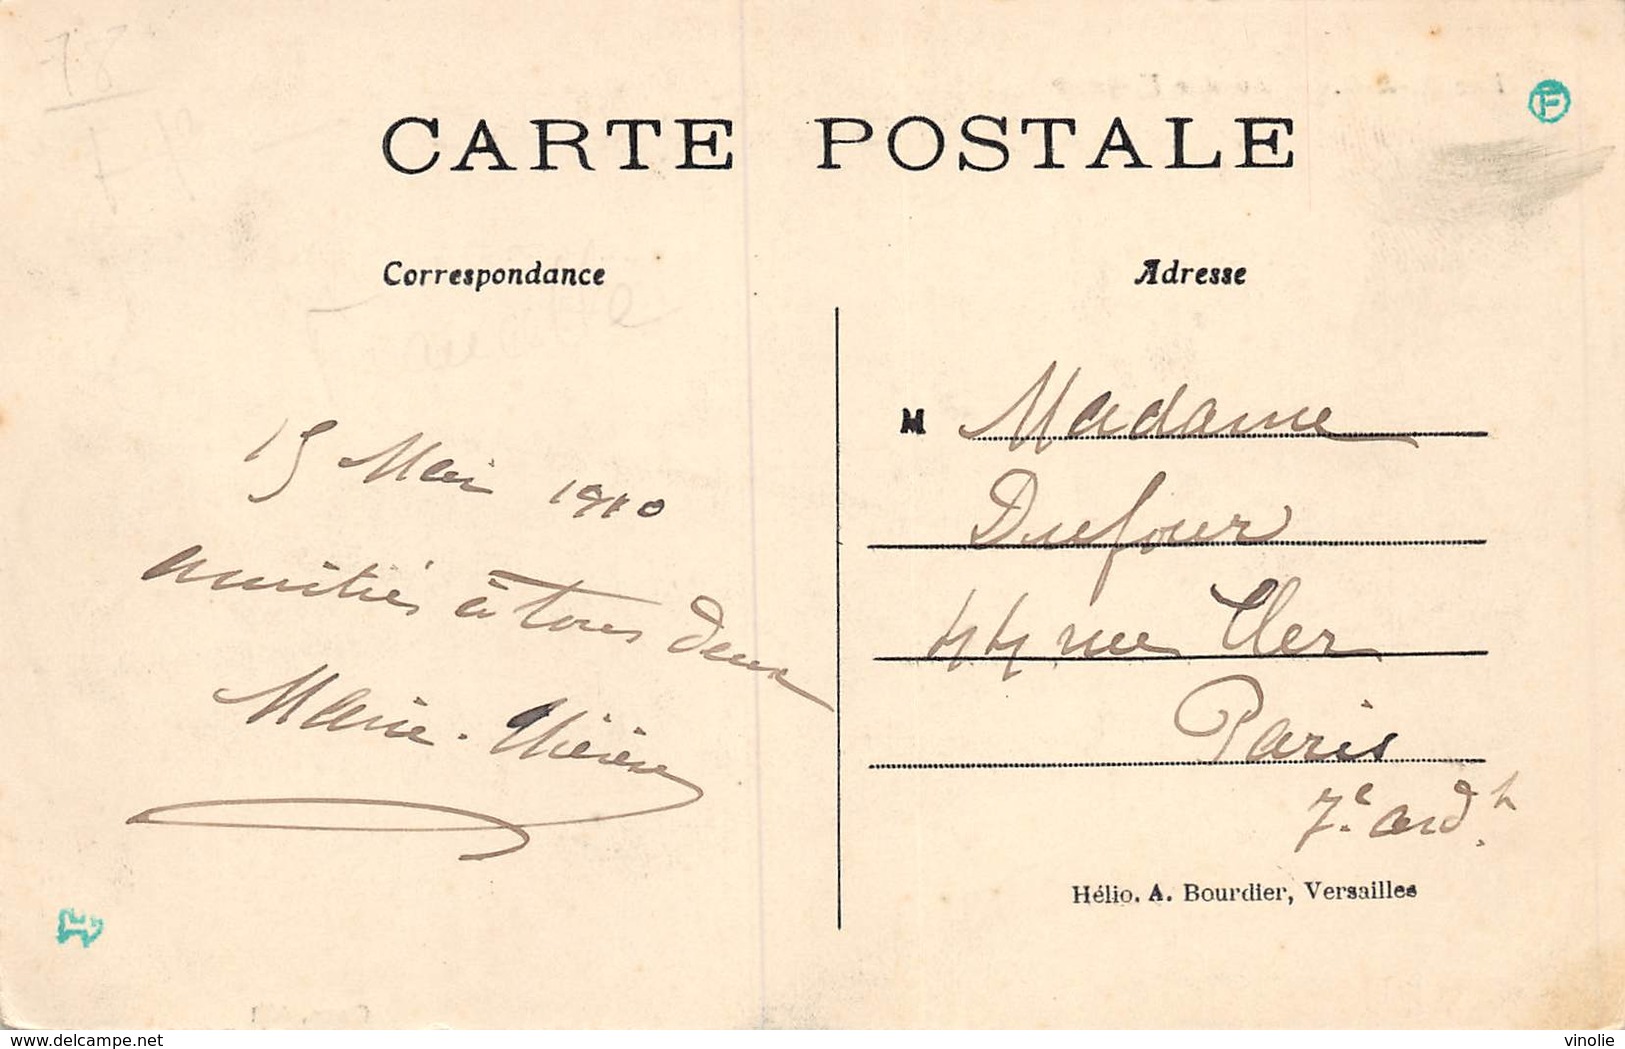 78
CARTE POSTALE
Correspondance
Adresse
15 Mai 1910
amitiés à tous deux
Marie-Thérèse
M Madame
Dufour
44 rue Cler
Paris
7e. ardt.
Hélio. A. Bourdier, Versailles
delcampe.net
vinolie